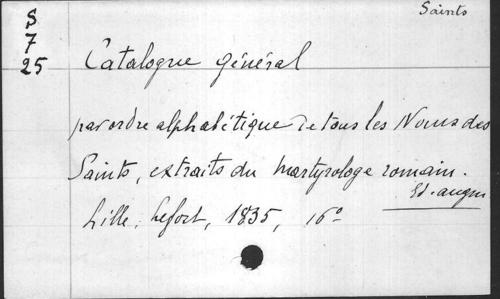 Saints
S
7
25
Catalogue général
par ordre alphabétique de tous les Noms des
Saints, extraits du martyrologe romain.
Ed. augm
Lille, Lefort, 1835, 16°